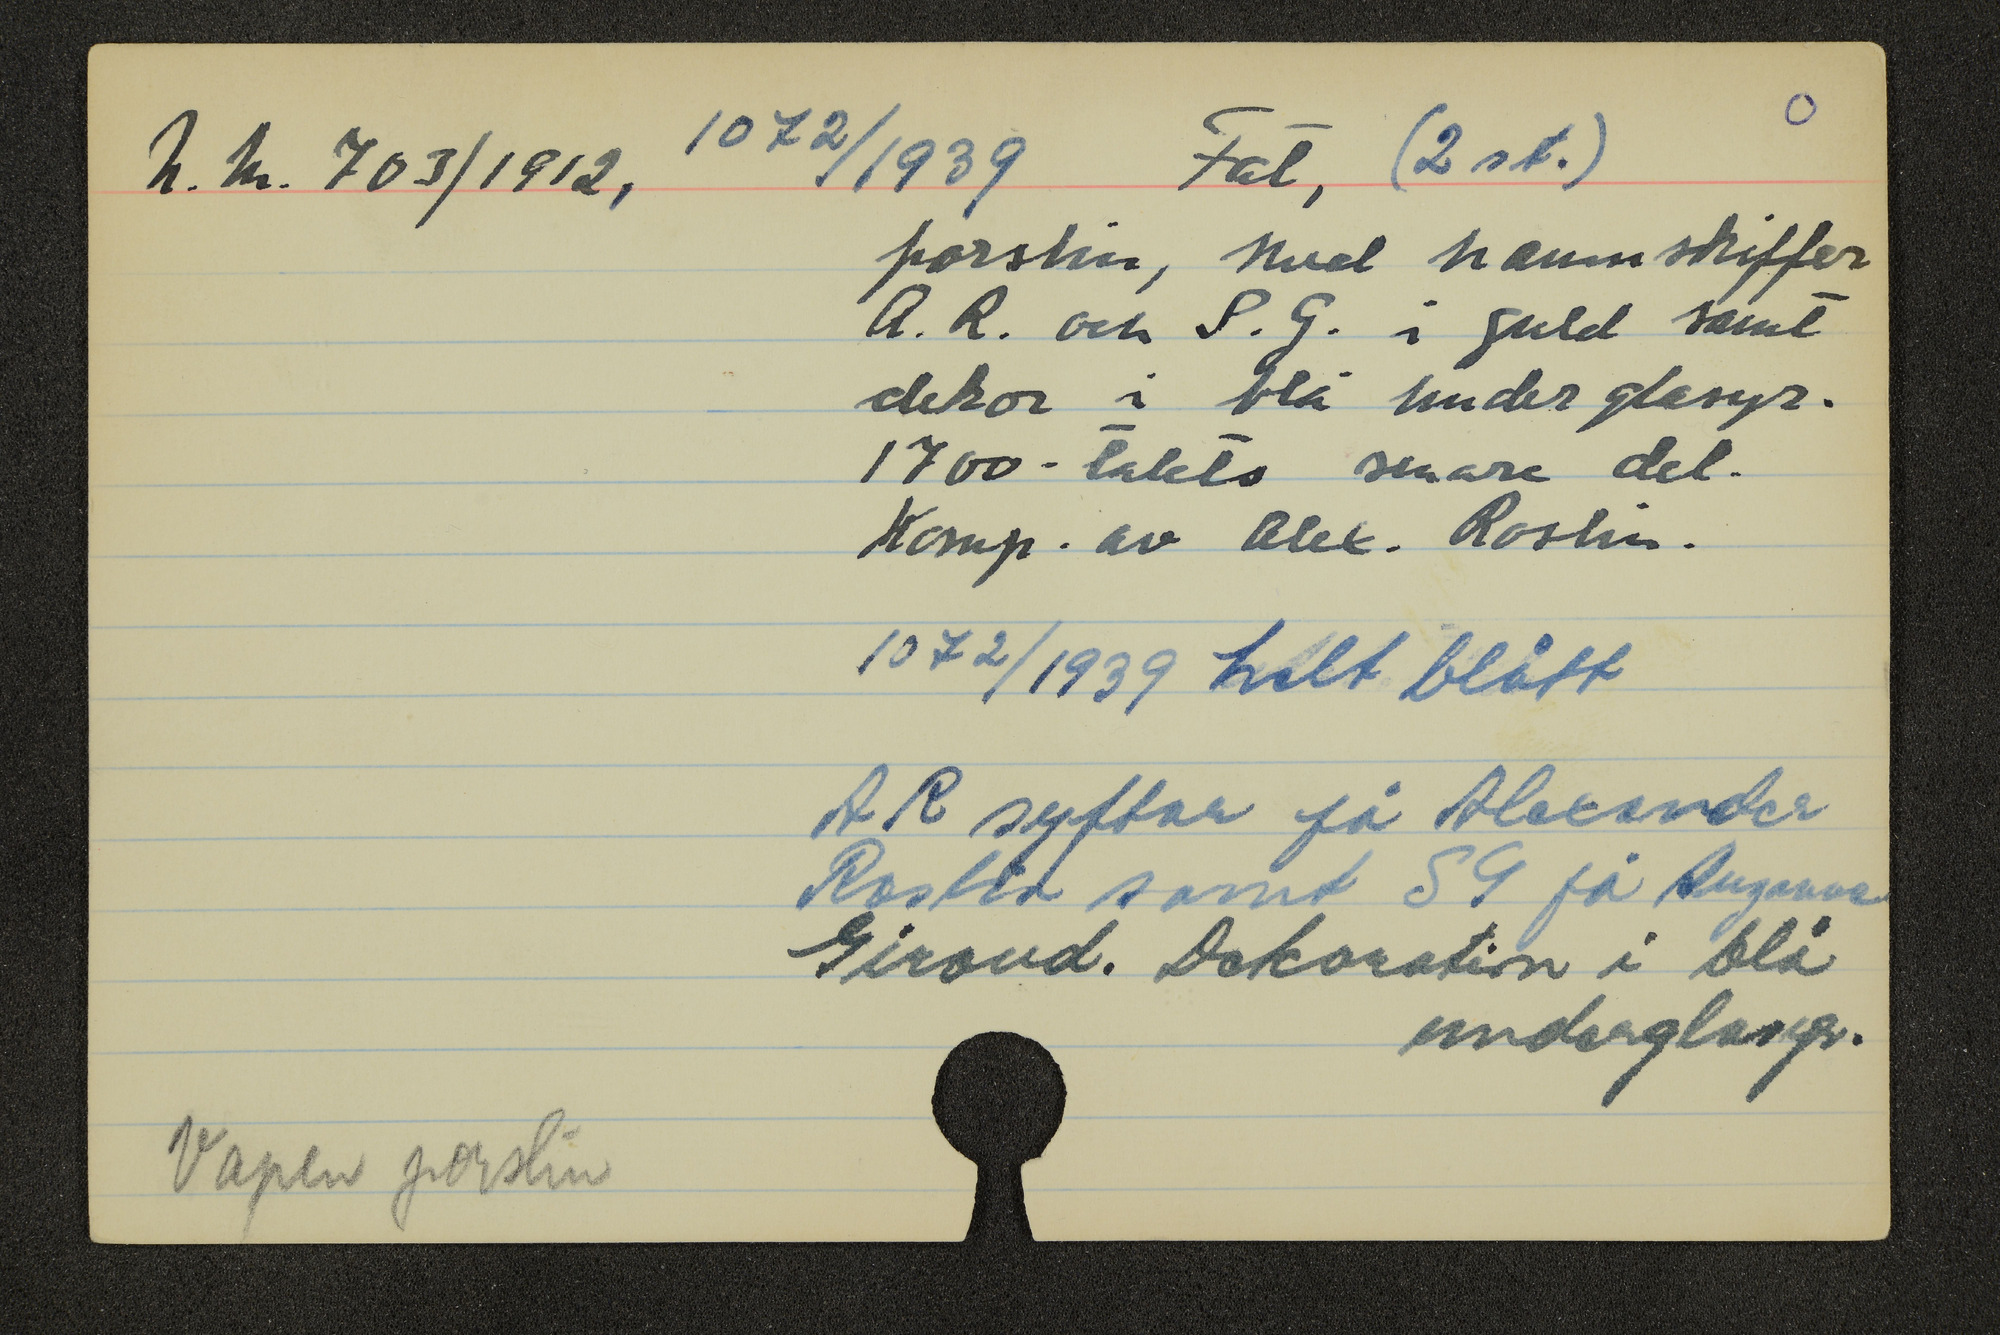 N. M. 703/1912, 1072/1939 Fat, (2 st.) O
porslin, med namnskiffer
A. R. och S. G. i guld samt
dekor i blå underglasyr.
1700-talets senare del.
Komp. av Alex. Roslin.
1072/1939 helt blått
AR syftar på Alexander
Roslin samt SG på Suzanne
Giroud. Dekoration i blå
underglasyr.
Vapen porslin